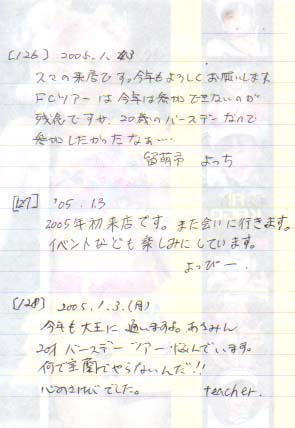 [126] 2005.1.3
スマの来店です。今年もよろしくお願いします
FCツアーは今年は参加できないのが
残念ですが、20歳のバースデーなので
参加したかったなぁ…
留萌市 よっち
[127] '05.1.3
2005年初来店です。また会いに行きます。
イベントなども楽しみにしています。
よっぴー.
[128] 2005.1.3.(月)
今年も大王に通いますよ。あさみん
20才バースデーツアー悩んでいます。
何で室蘭でやらないんだ!!
心のさけびでした。 teacher.